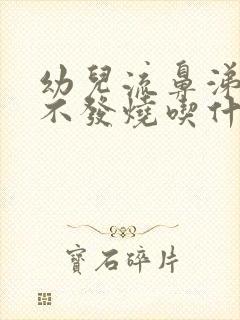 幼兒流鼻涕
不發燒喫什
寶石碎片